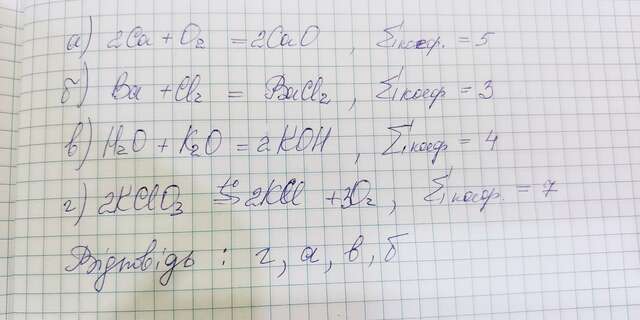 а) 2Ca + O₂ = 2CaO , Σкоеф. = 5
б) Ba + Cl₂ = BaCl₂ , Σкоеф = 3
в) H₂O + K₂O = 2KOH , Σкоеф = 4
г) 2KClO₃ t°⇆ 2KCl + 3O₂ , Σкоеф. = 7
Відповідь : г, а, в, б